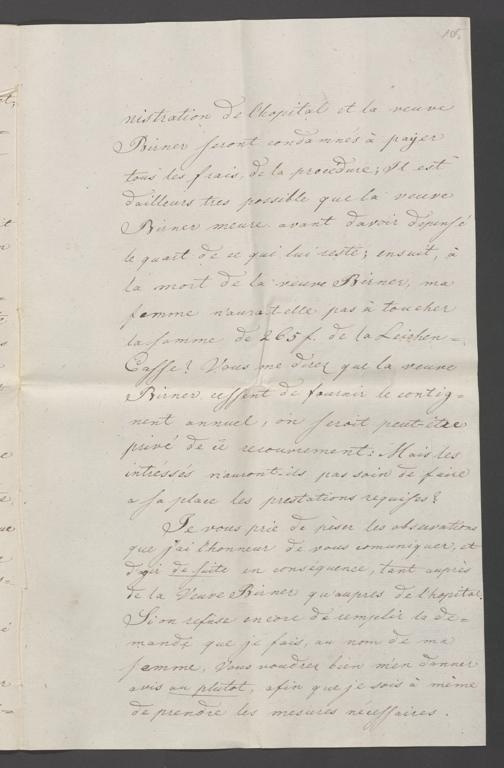 nistration de l'hopital et la veuve
Birner seront condamnés à payer
tous les frais, de la procedure; Il est
dailleurs tres possible que la veuve
Birner meure avant d'avoir depensé
le quart de ce qui lui reste; ensuit, à
la mort de la veuve Birner, ma
femme n'aura-t-elle pas à toucher
la somme de 265 f. de la Leichen =
Casse? Vous me direz que la veuve
Birner cessent de fournir le contig-
nent annuel, on seroit peut-être
privé de ce recouvrement: Mais les
intéressés n'auront-ils pas soin de faire
a sa place les prestations requises?
Je vous prie de pèser les observations
que j'ai l'honneur de vous comuniquer, et
d'agir de suite en consequence, tant auprès
de la Veuve Birner qu'aupres de l'hopital.
Si on refuse encore de remplir la de=
mande que je fais, au nom de ma
femme, Vous voudrez bien m'en donner
avis au plutot, afin que je sois à même
de prendre les mesures nécessaires.